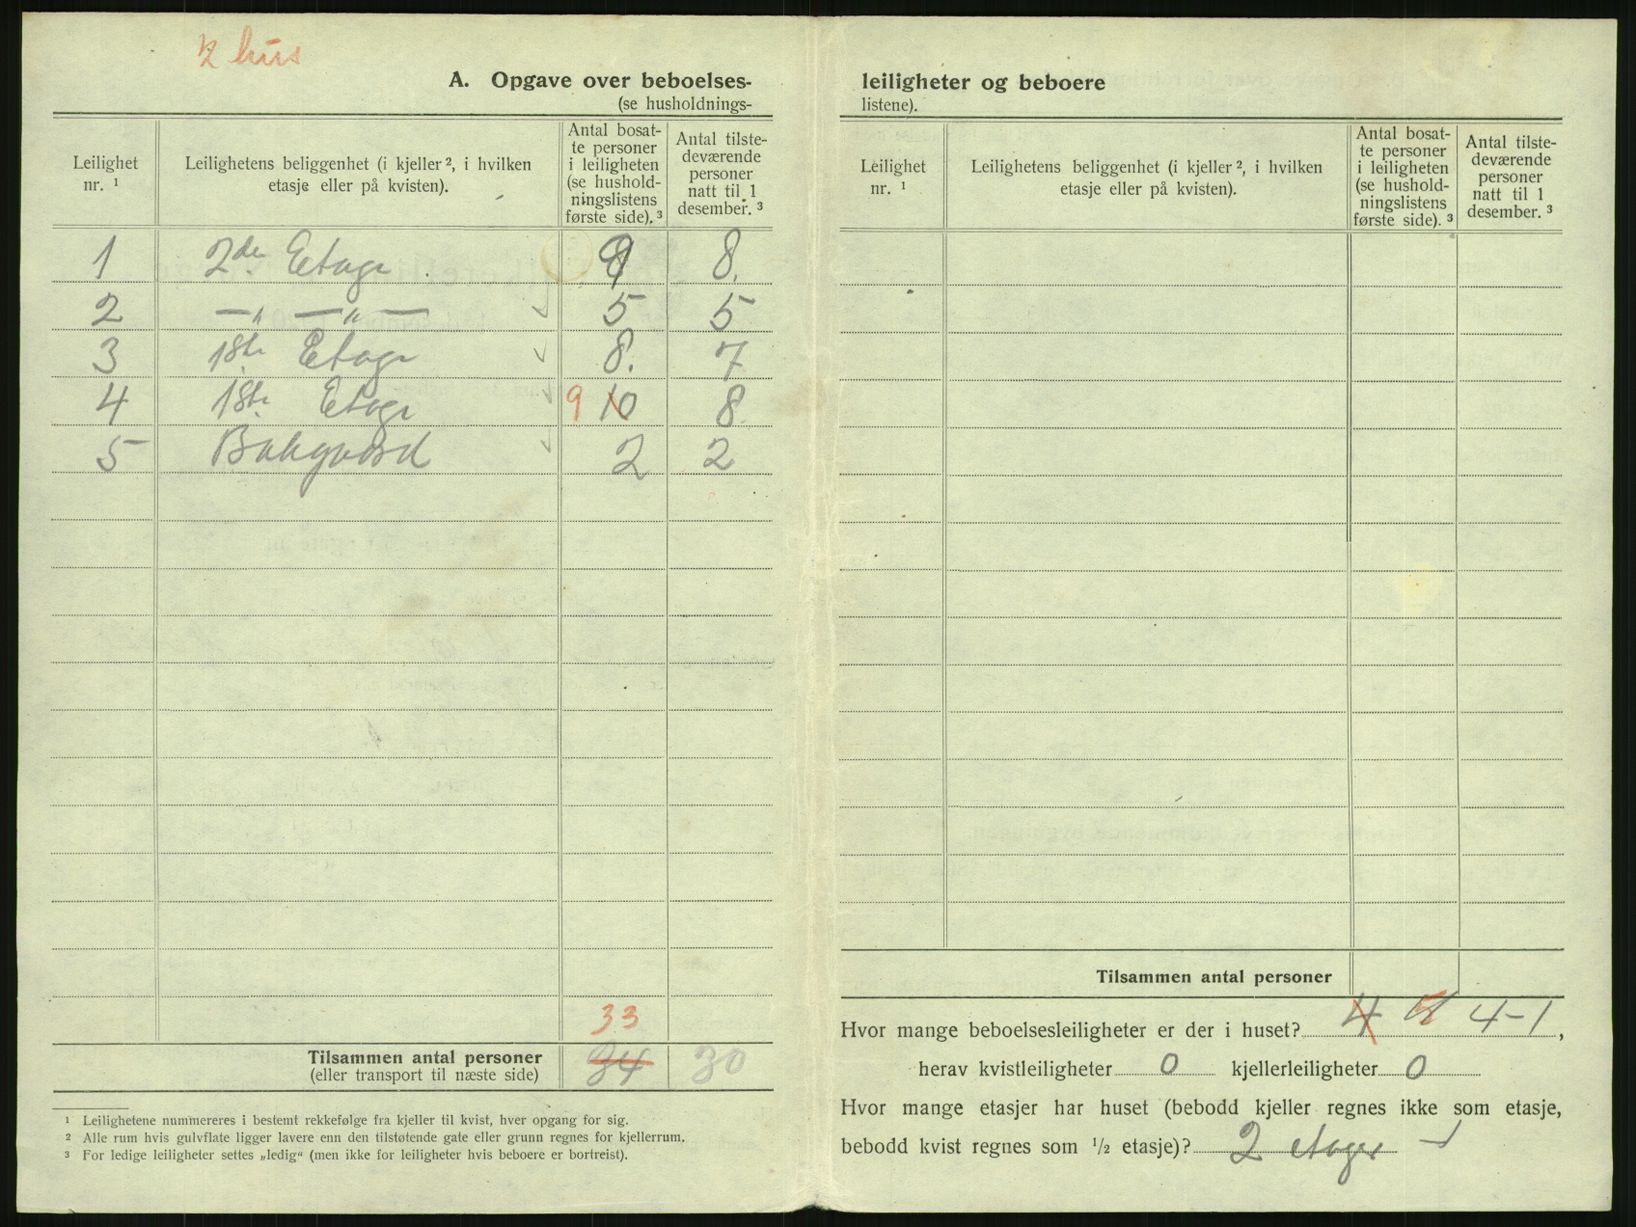 2 hus
A. Opgave over beboelses-
(se husholdnings-
Leilighet nr. ¹
Leilighetens beliggenhet (i kjeller ², i hvilken etasje eller på kvisten).
Antal bosat-
te personer
i leiligheten
(se hushold-
ningslistens
første side). ³
Antal tilste-
deværende
personer
natt til 1
desember. ³
1 2den Etage 8 8.
2 —„—„— 5 5
3 1ste Etage 8. 7
4 1ste Etage 9 10 8.
5 Bakgaard 2 2
33
Tilsammen antal personer 34 30
(eller transport til næste side)
¹ Leilighetene nummereres i bestemt rekkefølge fra kjeller til kvist, hver opgang for sig.
² Alle rum hvis gulvflate ligger lavere enn den tilstøtende gate eller grunn regnes for kjellerrum.
³ For ledige leiligheter settes „ledig“ (men ikke for leiligheter hvis beboere er bortreist).
leiligheter og beboere
listene).
Leilighet nr. ¹
Leilighetens beliggenhet (i kjeller ², i hvilken etasje eller på kvisten).
Antal bosat-
te personer
i leiligheten
(se hushold-
ningslistens
første side). ³
Antal tilste-
deværende
personer
natt til 1
desember. ³
Tilsammen antal personer
Hvor mange beboelsesleiligheter er der i huset? 4 5 4-1,
herav kvistleiligheter 0 kjellerleiligheter 0
Hvor mange etasjer har huset (bebodd kjeller regnes ikke som etasje,
bebodd kvist regnes som ½ etasje)? 2 etager